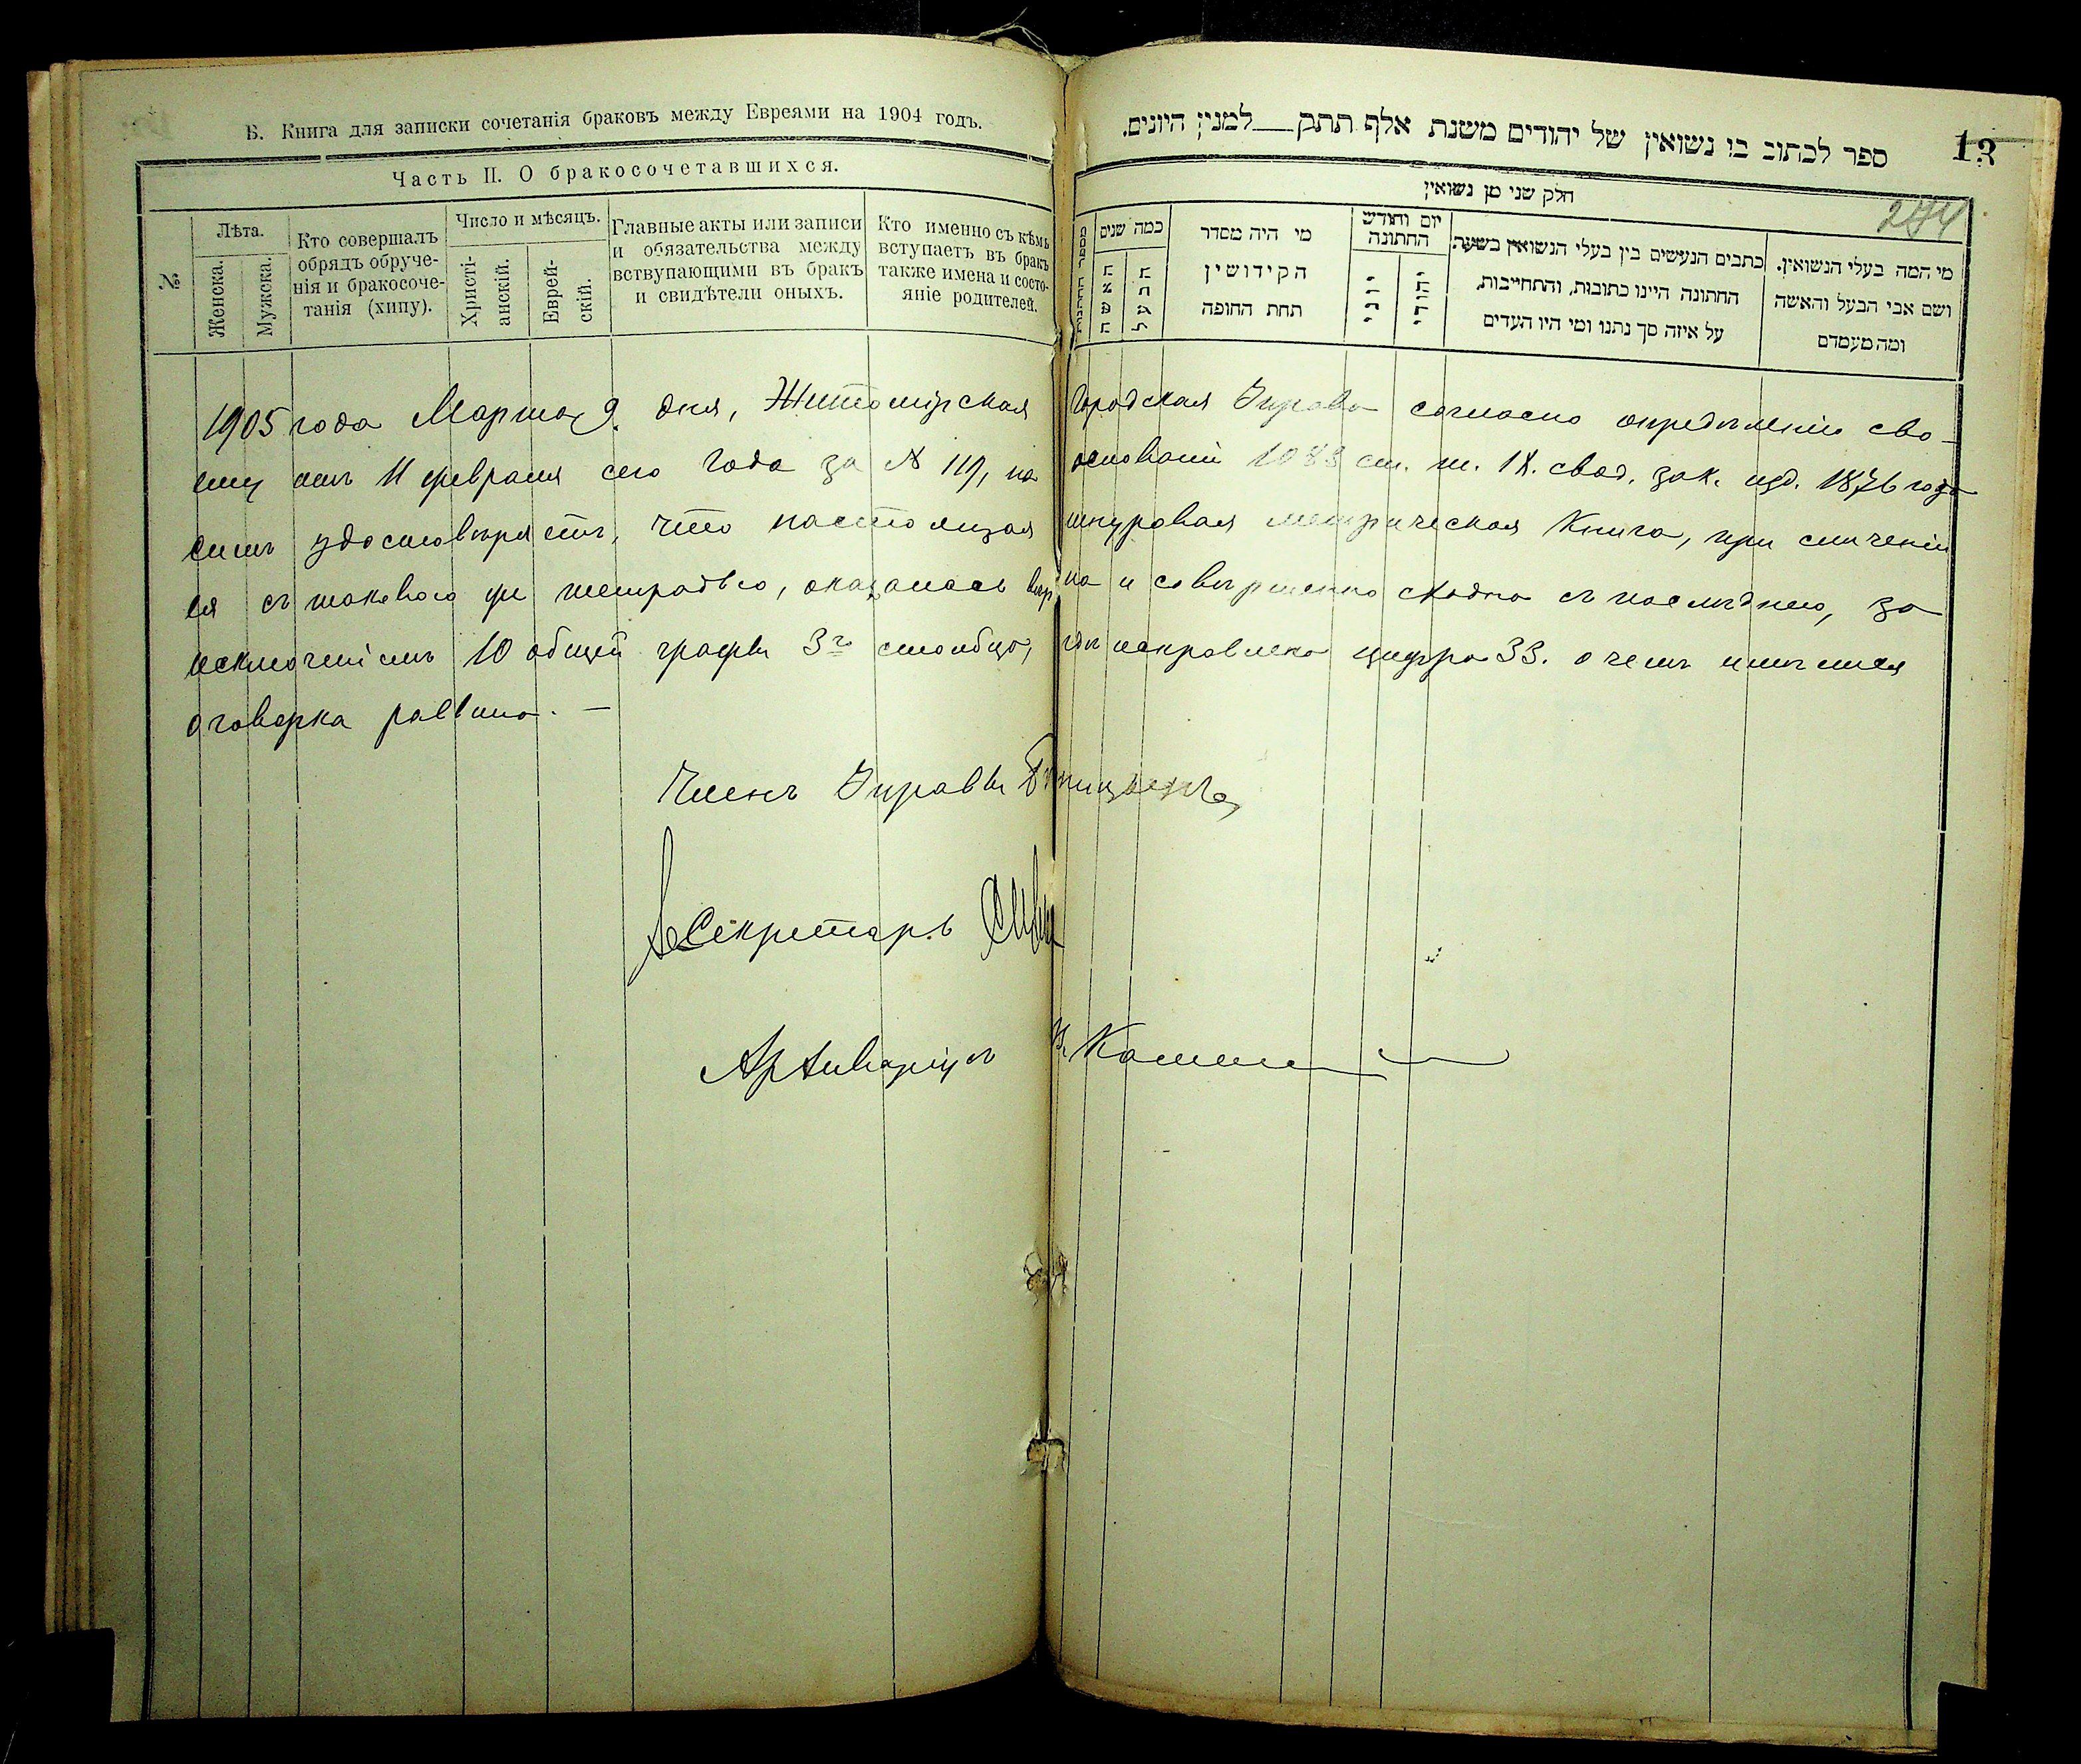 Б. Книга для записки сочетанія браковъ между Евреями на 1904 годъ.
Часть II. О бракосочетавшихся.
№
Лѣта.
Женска.
Мужска.
Кто совершалъ
обрядъ обруче-
нія и бракосоче-
танія (хипу).
Число и мѣсяцъ.
Христі-
анскій.
Еврей-
скій.
Главные акты или записи
и обязательства между
вствупающими въ бракъ
и свидѣтели оныхъ.
Кто именно съ кѣмъ
вступаетъ въ бракъ
также имена и состо-
яніе родителей.
ספר לכתוב בו נשואין של יהודים משנת אלף תתק__למנין היונים.
13
274
חלק שני מן נשואין
מספר החתונות
כמה שנים
האשה
הבעל
מי היה מסדר
הקידושין
תחת החופה
יום וחודש
החתונה
יוני
יהודי
כתבים הנעשים בין בעלי הנשואין בשעת
החתונה היינו כתובות, והתחייבות,
על איזה סך נתנו ומי היו העדים
מי המה בעלי הנשואין.
ושם אבי הבעל והאשה
ומה מעמדם
1905 года Марта 9 дня, Житомірская Городская Управа согласно опредѣленію сво-
ему отъ 11 февраля сего года за № 119, на основаніи 1088 ст. т. IX. свод. зак. изд. 1876 года
симъ удостовѣряетъ, что настоящая шнуровая метрическая книга, при сличеніи
ея съ таковою же тетрадью, оказалась вѣрна и совершенно сходна съ послѣднею, за
исключеніемъ 10 общей графы 3го столбца, гдѣ исправлена цифра 33. о чемъ имѣется
оговорка раввина. —
Членъ Управы
Секретарь
Архиваріусъ